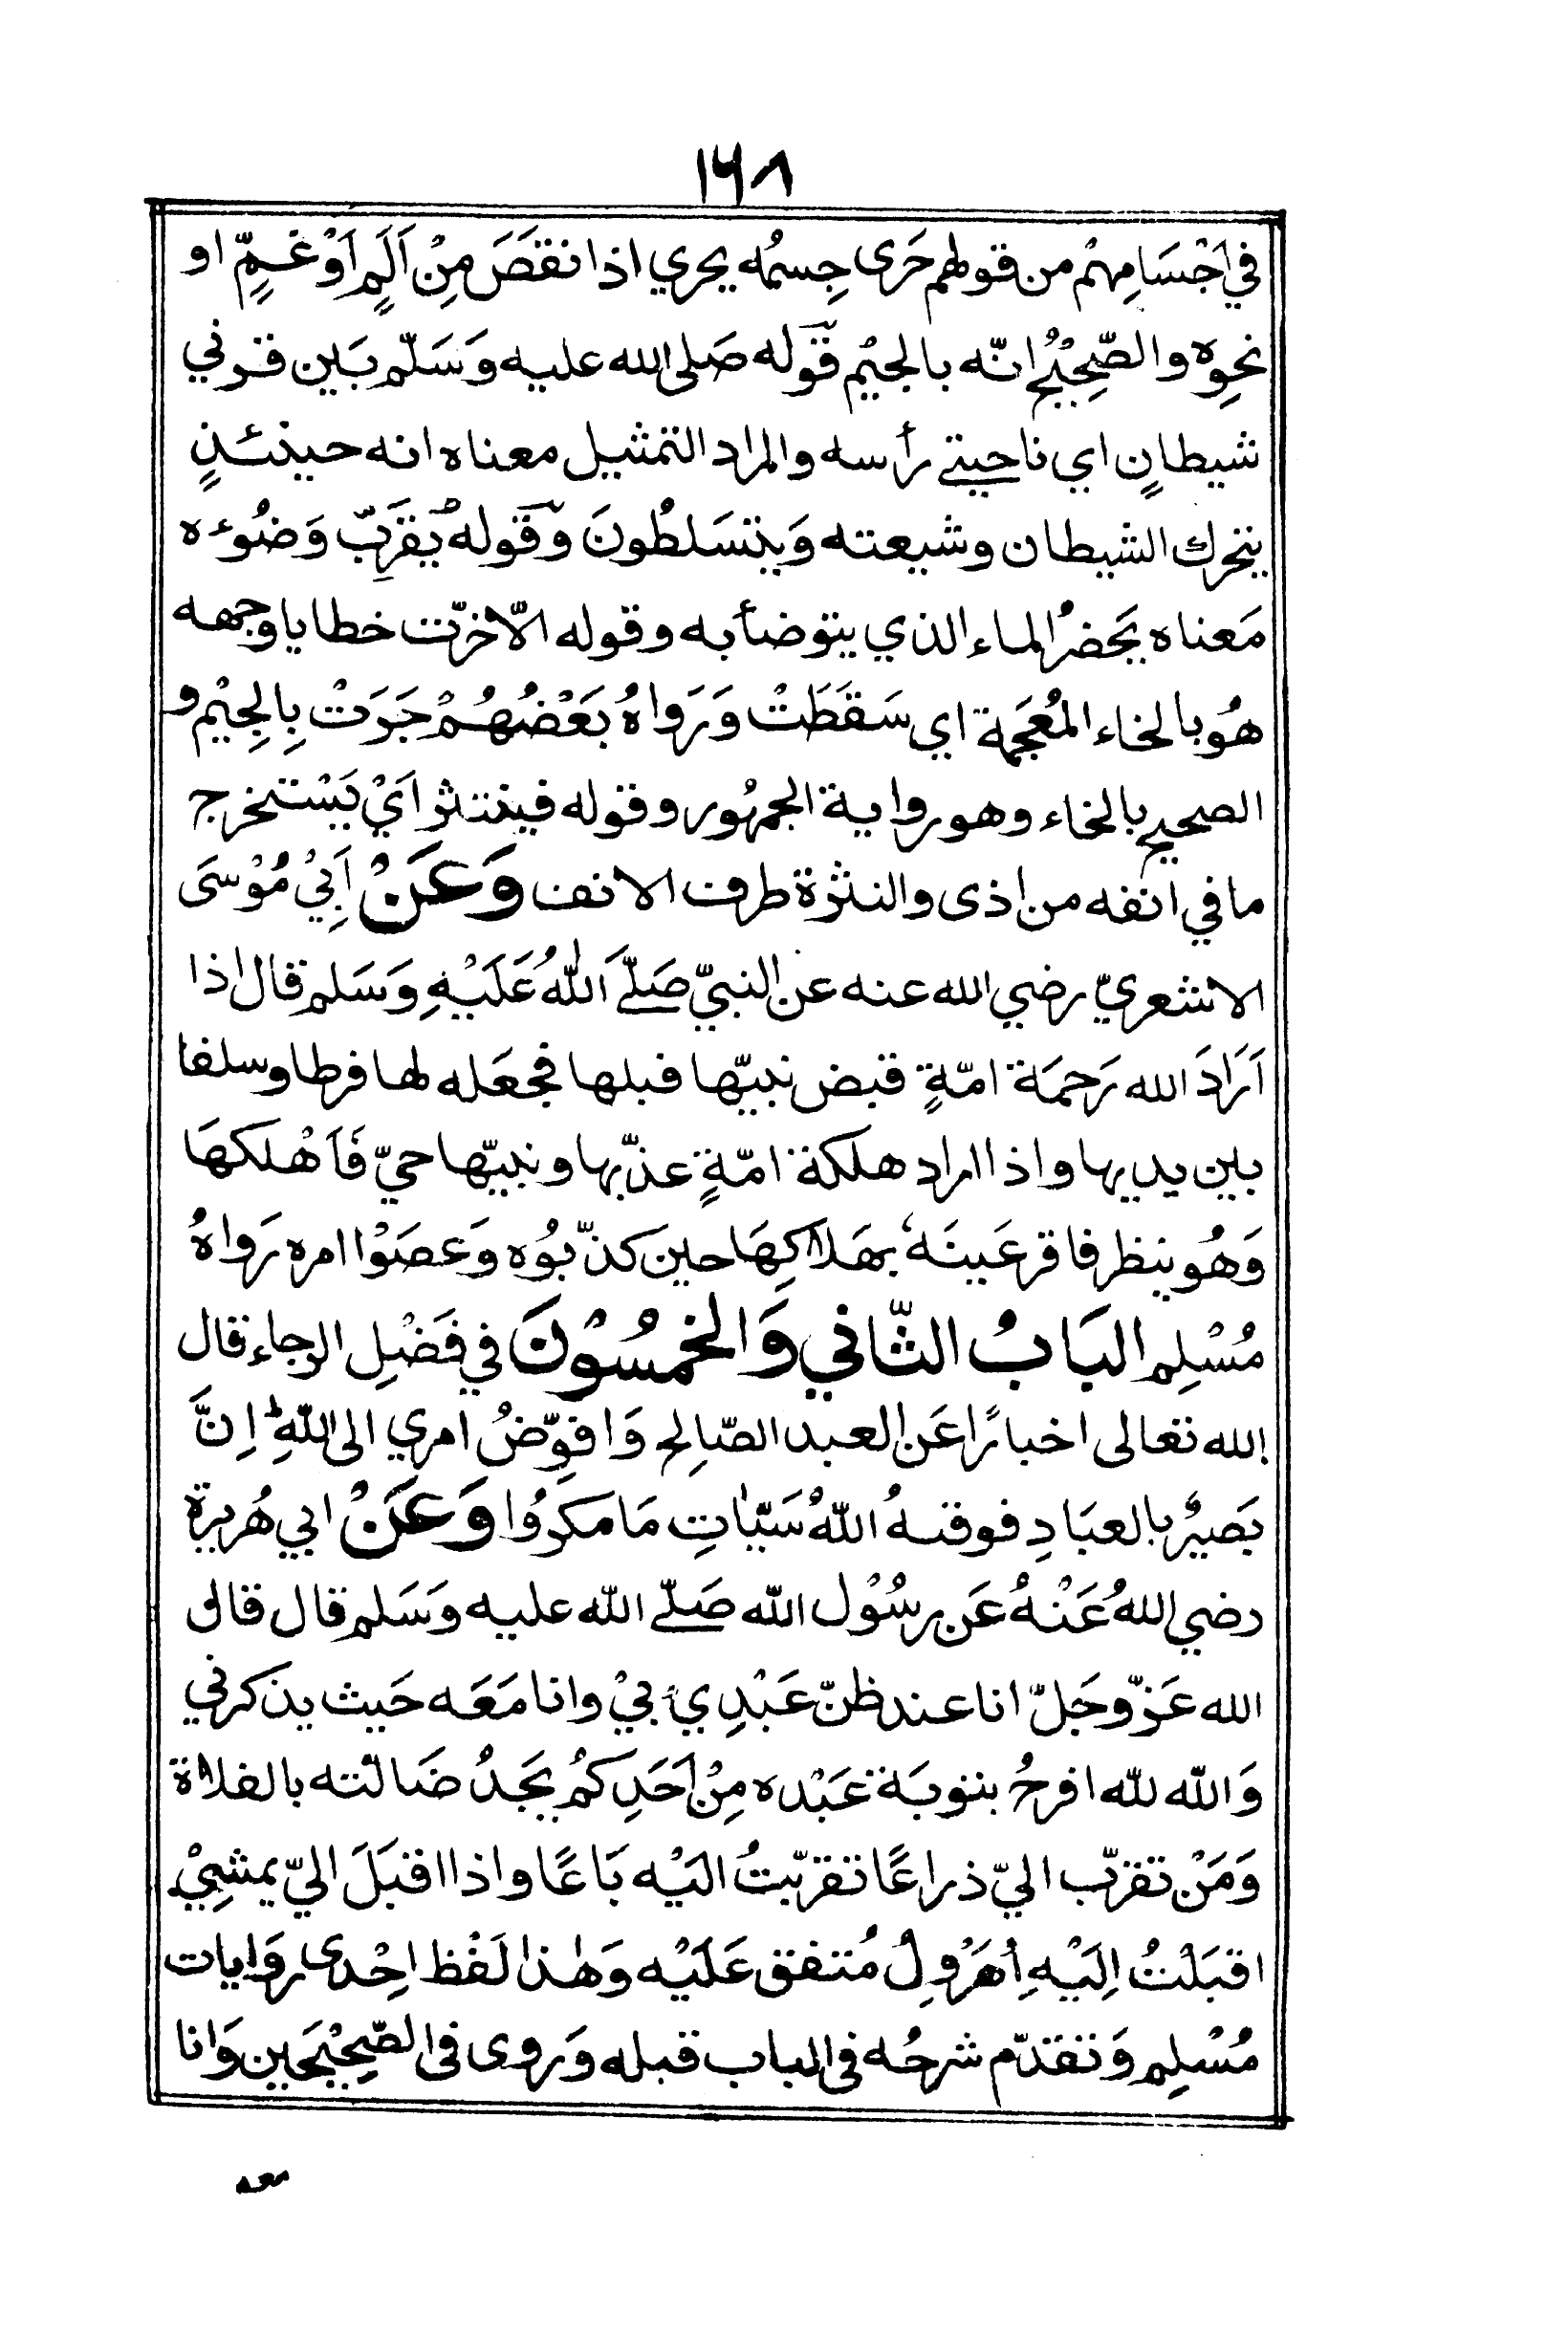 ١٦٨
في اَجْسَامِهِمْ من قولهم حَرَى جِسمُه يحري اذا نقَصَ مِنْ اَلَمٍ اَوْ غَمٍّ او
نحوِه والصّحِيْحُ انّه بالجيْم قوله صَلى الله عليه وَسَلّم بَين قرني
شيطانٍ اي ناحيتي رأسه والمراد التمثيل معناه انه حينئذٍ
يتحرك الشيطان وشيعته وَيتسَلطُونَ وقوله يُقرَبّ وَضُوءه
مَعناه يَحضرُ الماء الذي يتوضأ به وقوله الّا خرّت خطايا وجهه
هُو بالخاء المُعجَمة اي سَقَطَتْ وَرَواهُ بَعْضُهُمْ جَرَتْ بِالجِيْم و
الصحيح بالخاء وهو رواية الجمهُور وقوله فينتثر اَيْ يَسْتخرج
ما في انفه من اذى والنثرة طرف الانف وَعَنْ اَبِيْ مُوْسَى
الاشعريّ رضي الله عنه عن النبيّ صَلَّى اللهُ عَلَيْهِ وَسَلم قال اذا
اَرَادَ الله رَحمَة امّةٍ قبض نبيّها قبلها فجعَله لها فرطا وسلفا
بين يديها واذا اراد هلكة امّةٍ عذّبها ونبيّها حيّ فَاَهْلكهَا
وَهُو ينظر فاقر عَينَهٗ بهَلاكِهَا حين كذّبُوه وَعصَوْا امره رَواهُ
مُسْلِم البَابُ الثّاني وَالخمسُوْنَ في فَضْلِ الرجاء قال
الله تعالى اخبارًا عَن العبد الصّالِح وَافوّضُ امري الى اللّهِ اِنَّ
بَصيرٌ بالعبَادِ فوقىهُ اللّهُ سَيّاٰتِ مَا مكروُا وَعَنْ ابي هُريرة
رضي اللهُ عَنْهُ عَن رسُوْل اللّه صَلّى اللّه عليه وَسَلم قال قال
الله عَزّ وجَلّ انا عند ظنّ عَبْدِيْ بيْ وانا مَعَه حَيث يذكرني
وَاللّه للّه افرحُ بتوبَة عَبْده مِنْ اَحَدِكمُ يَجدُ ضَالته بالفلاة
وَمَنْ تقرّب اليّ ذراعًا تقرّبتُ اليْه بَاعًا واذا اقبَلَ اليّ يمشِيْ
اقبَلْتُ اِلَيْهِ اُهَرْوِلُ مُتفق عَلَيْه وَهٰذا لَفْظ اِحْدى روَايات
مُسْلِم وَتقدّم شرحُه في الباب قبله وَروى في الصّحِيْحَين وَانا
معه